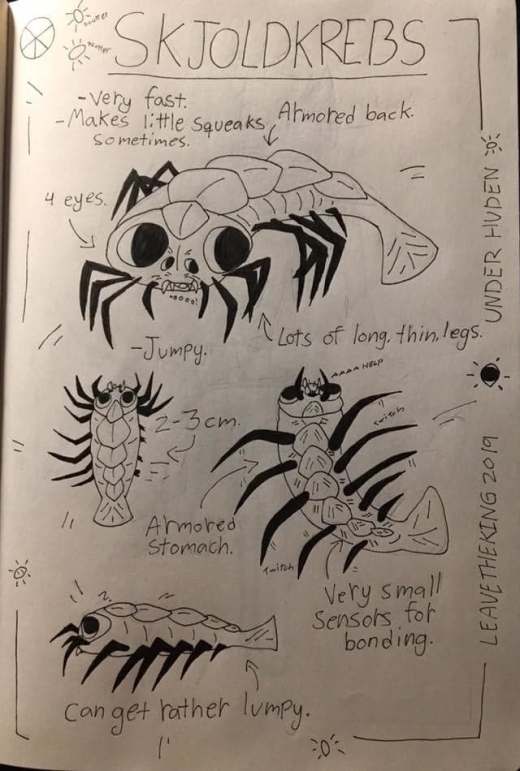 SKJOLDKREBS
-Very fast.
-Makes little squeaks
sometimes.
Armored back.
4 eyes.
Lots of long, thin, legs.
-Jumpy.
AAAA HELP
Twitch
2-3 cm.
Armored
Stomach.
Twitch
Very small
Sensors for
bonding.
Can get rather lumpy.
UNDER HUDEN
LEAVETHEKING 2019